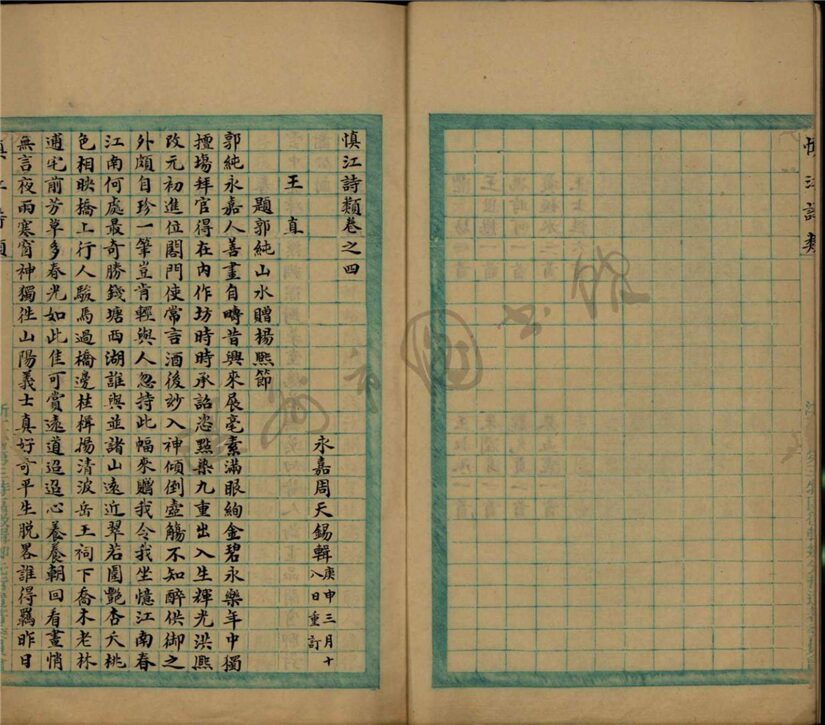 慎江詩類
慎江詩類卷之四
永嘉周天錫輯 庚申三月十
八日重訂
王直
題郭純山水贈楊熙節
郭純永嘉人善畫自疇昔興來展毫素滿眼絢金碧永樂年中獨
擅場拜官得在内作坊時時承詔恣㸃染九重出入生輝光洪熈
改元初進位閣門使常言酒後妙入神傾倒壺觴不知醉供御之
外頗自珍一筆豈肯輕與人忽持此幅來贈我令我坐憶江南春
江南何處最奇勝錢塘西湖誰與並諸山遠近翠若圍艷杏夭桃
色相映橋上行人駿馬過橋邊桂楫揚清波岳王祠下喬木老林
逋宅前芳草多春光如此佳可賞遠道迢迢心養養朝回看畫悄
無言夜雨寒窗神獨徃山陽義士真好奇平生脱畧誰得羈昨日